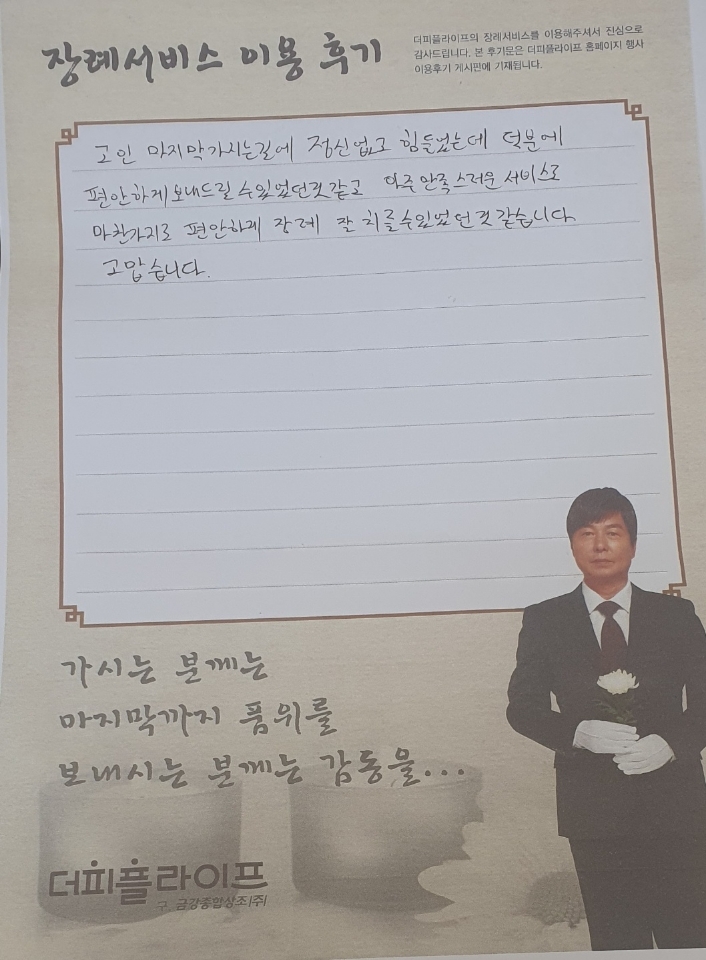 장례서비스 이용 후기
더피플라이프의 장례서비스를 이용해주셔서 진심으로
감사드립니다. 본 후기문은 더피플라이프 홈페이지 행사
이용후기 게시판에 기재됩니다.
고인 마지막가시는길에 정신없고 힘들었는데 덕분에
편안하게보내드릴수있었던것같고 아주만족스러운서비스로
마찬가지로 편안하게 장례 잘 치룰수있었던것같습니다
고맙습니다.
가시는 분께는
마지막까지 품위를
보내시는 분께는 감동을...
더피플라이프
구. 금강종합상조(주)